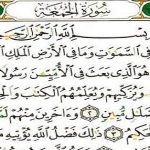 سُورَةُ الْجُمُعَةِ
بِسْمِ اللَّهِ الرَّحْمَٰنِ الرَّحِيمِ
فِي السَّمَاوَاتِ وَمَا فِي الْأَرْضِ الْمَلِكِ
هُوَ الَّذِي بَعَثَ فِي الْأُمِّيِّينَ رَسُولًا
وَيُزَكِّيهِمْ وَيُعَلِّمُهُمُ الْكِتَابَ
٢ وَآخَرِينَ مِنْهُمْ
٣ ذَٰلِكَ فَضْلُ اللَّهِ يُؤْتِيهِ